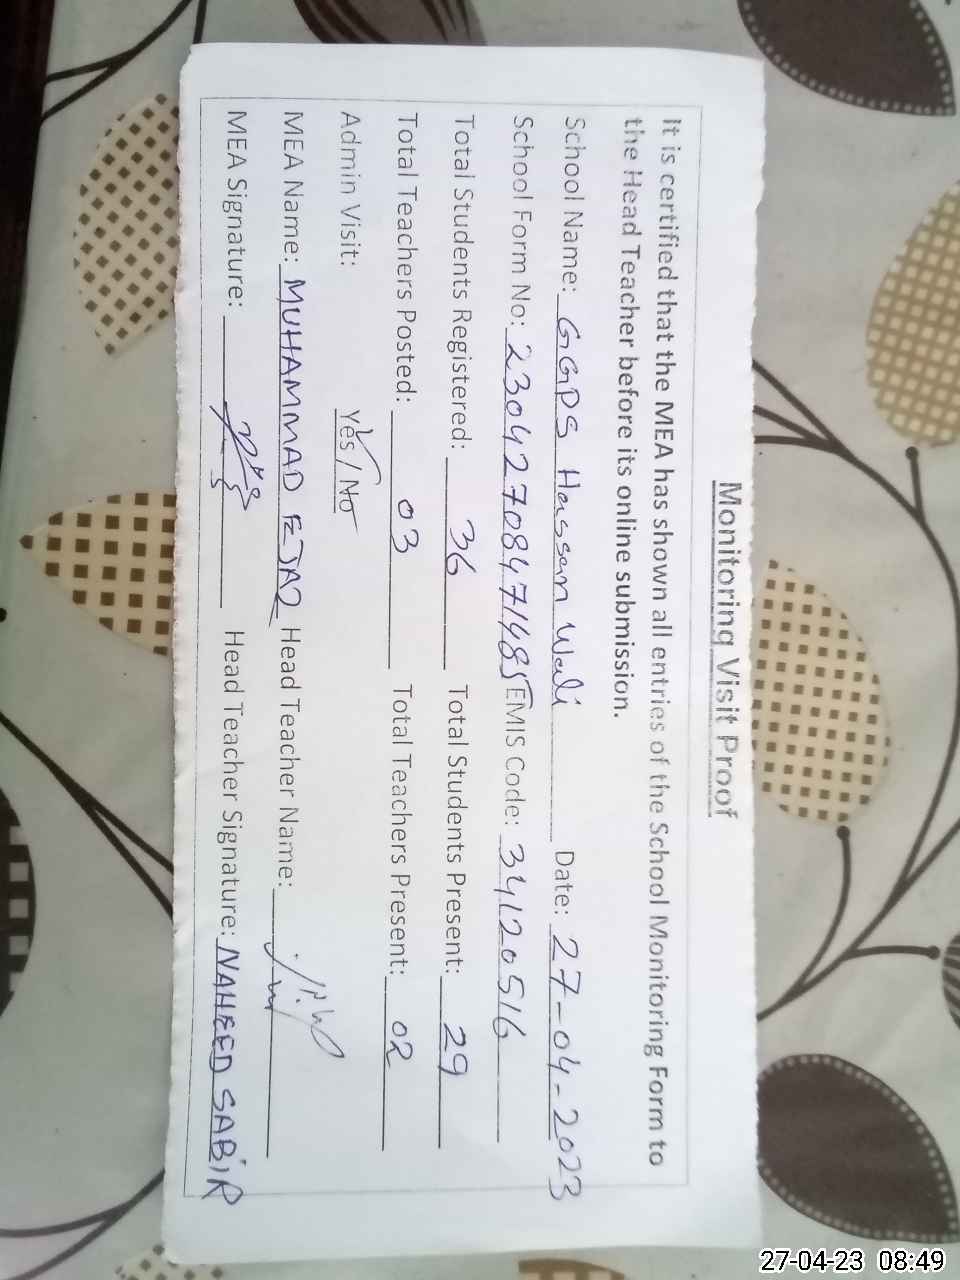 Monitoring Visit Proof
It is certified that the MEA has shown all entries of the School Monitoring Form to
the Head Teacher before its online submission.
School Name: GGPS Hassan Wali Date: 27-04-2023
School Form No: 23042708471485 EMIS Code: 34120516
Total Students Registered: 36 Total Students Present: 29
Total Teachers Posted: 03 Total Teachers Present: 02
Admin Visit: Yes / No
MEA Name: MUHAMMAD EJAZ Head Teacher Name:
MEA Signature: Head Teacher Signature: NAHEED SABiR
27-04-23 08:49